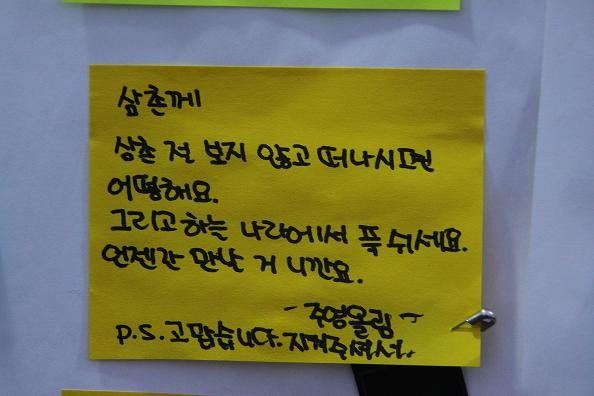 삼촌께
삼촌 전 보지 않고 떠나시면
어떻해요.
그리고 하는 나라에서 푹 쉬세요.
언젠간 만날 거 니깐요.
- 주영올림 -
P.S. 고맙습니다. 지켜주셔서.